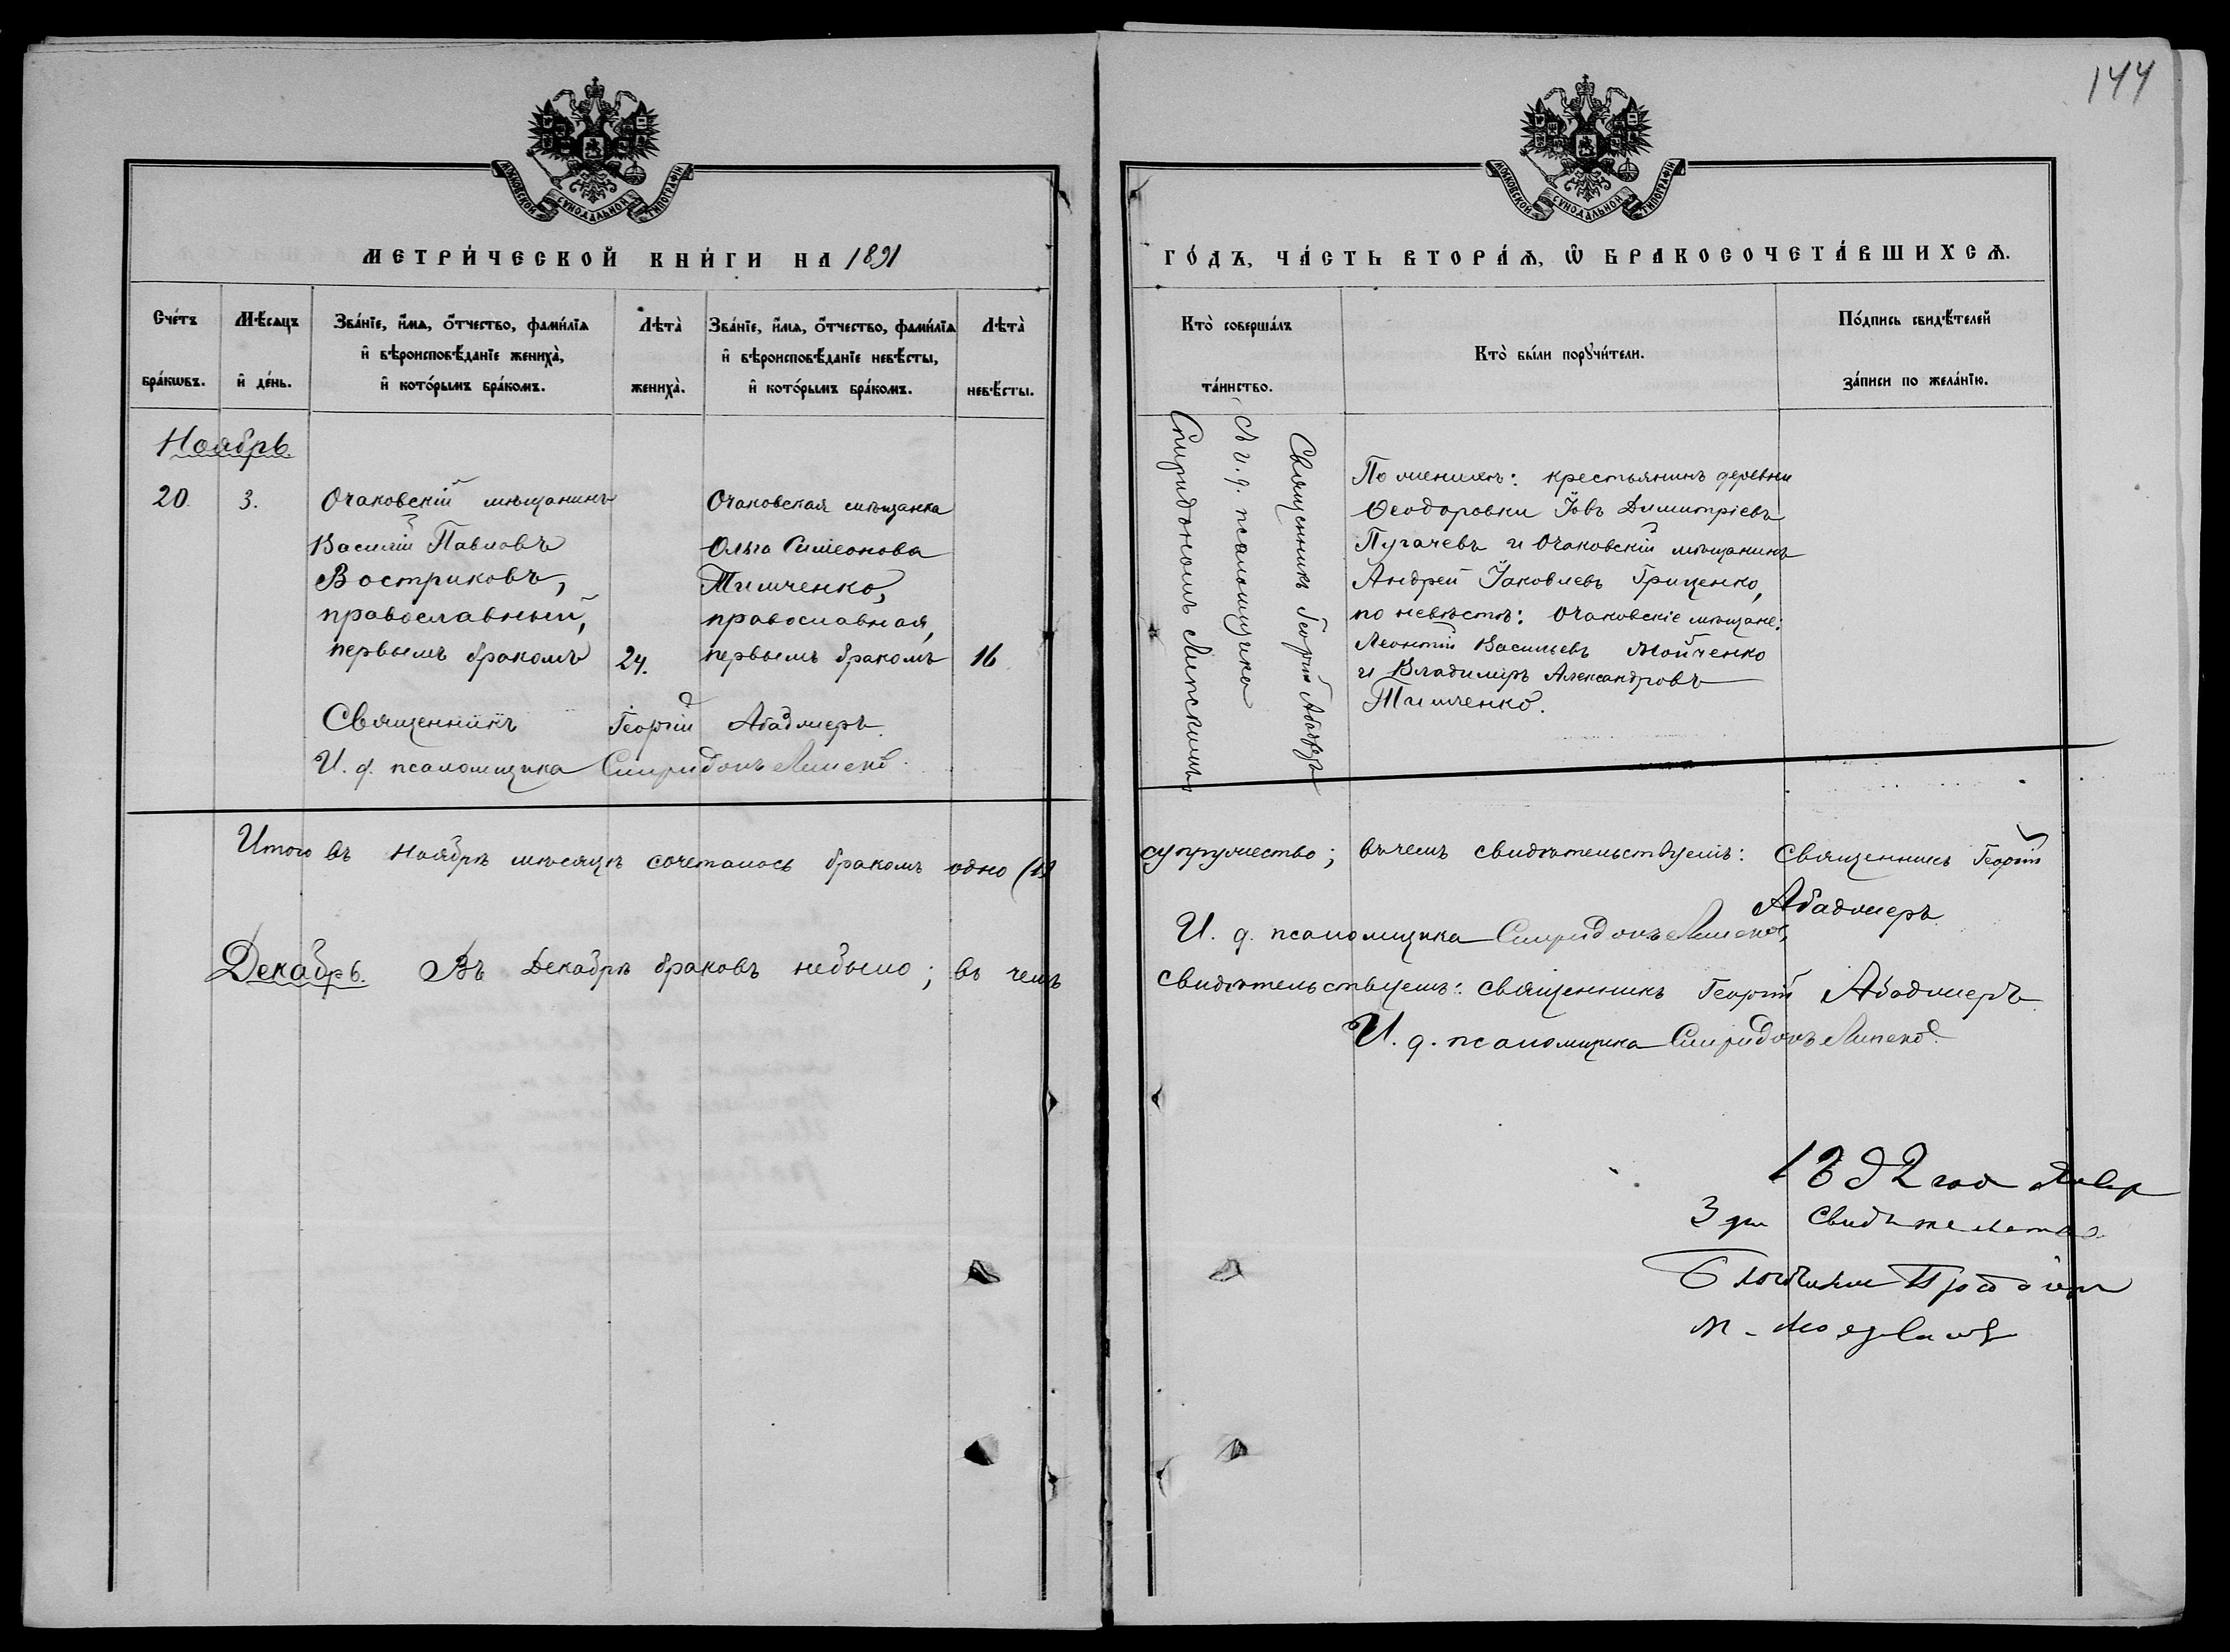 144
МОСКОВСКОЙ СѴНОДАЛЬНОЙ ТИПОГРАФІИ
МОСКОВСКОЙ СѴНОДАЛЬНОЙ ТИПОГРАФІИ
МЕТРИ́ЧЕСКОЙ КНИ́ГИ НА 1891
ГО́ДЪ, ЧА́СТЬ ВТОРА́Ѧ, Ѽ БРАКОСОЧЕТА́ВШИХСѦ.
Сче́тъ бра́кѡвъ.
Мѣ́сяцъ и҆ де́нь.
Зва́нїе, и҆́мѧ, ѻ҆́тчество, фами́лїѧ
и҆ вѣроисповѣ́данїе жениха̀,
и҆ кото́рымъ бра́комъ.
Лѣта̀ жениха̀.
Зва́нїе, и҆́мѧ, ѻ҆́тчество, фами́лїѧ
и҆ вѣроисповѣ́данїе невѣ́сты,
и҆ кото́рымъ бра́комъ.
Лѣта̀ невѣ́сты.
Кто̀ соверша́лъ
та́инство.
Кто̀ бы́ли порꙋчи́тели.
По́дпись свидѣ́телей
за́писи по жела́нїю.
Ноябрь
20. 3.
Очаковскій мѣщанинъ
Василій Павловъ
Востриковъ,
православный,
первымъ бракомъ 24.
Очаковская мѣщанка
Ольга Симеонова
Тимченко,
православная,
первымъ бракомъ 16
Священникъ Георгій
съ и. д. псаломщика
Спиридономъ Липскимъ
По женихѣ: крестьянинъ деревни
Ѳеодоровки Іовъ Димитріевъ
Пугачевъ и Очаковскій мѣщанинъ
Андрей Іаковлевъ Гриценко,
по невѣстѣ: Очаковскіе мѣщане:
Леонтій Васильевъ Мойченко
и Владиміръ Александровъ
Тимченко.
Священникъ Георгій
И. д. псаломщика Спиридонъ
Итого въ Ноябрѣ мѣсяцѣ сочеталось бракомъ одно (1)
супружество; въ чемъ свидѣтельствуемъ: Священникъ Георгій
И. д. псаломщика Спиридонъ
Декабрь. Въ Декабрѣ браковъ небыло; въ чемъ
свидѣтельствуемъ: священникъ Георгій
И. д. псаломщика Спиридонъ
1892 года Январ
3 дня